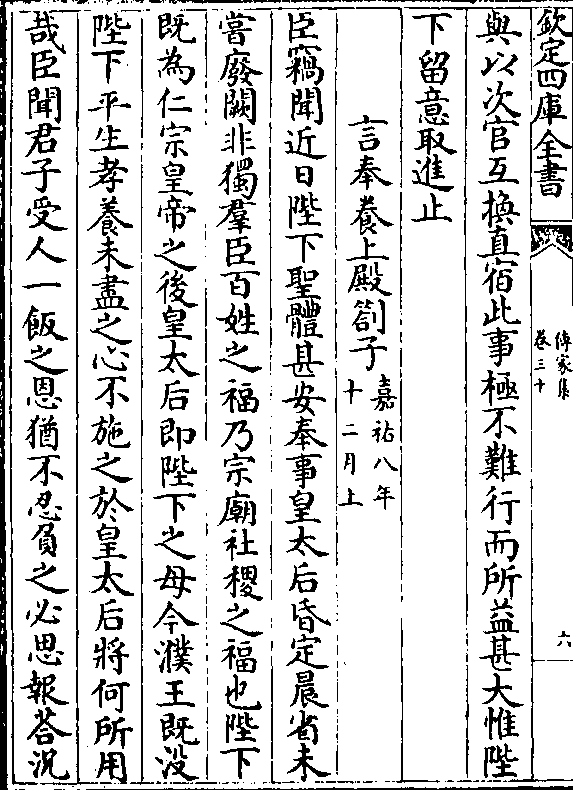 欽定四庫全書
傳家集
卷三十
六
與以次官互換真宿此事極不難行而所益甚大惟陛
下留意取進止
言奉養上殿劄子嘉祐八年十二月上
臣竊聞近日陛下聖體甚安奉事皇太后昏定晨省未
嘗廢闕非獨羣臣百姓之福乃宗廟社稷之福也陛下
既為仁宗皇帝之後皇太后即陛下之母今濮王既沒
陛下平生孝養未盡之心不施之於皇太后將何所用
哉臣聞君子受人一飯之恩猶不忍負之必思報荅況